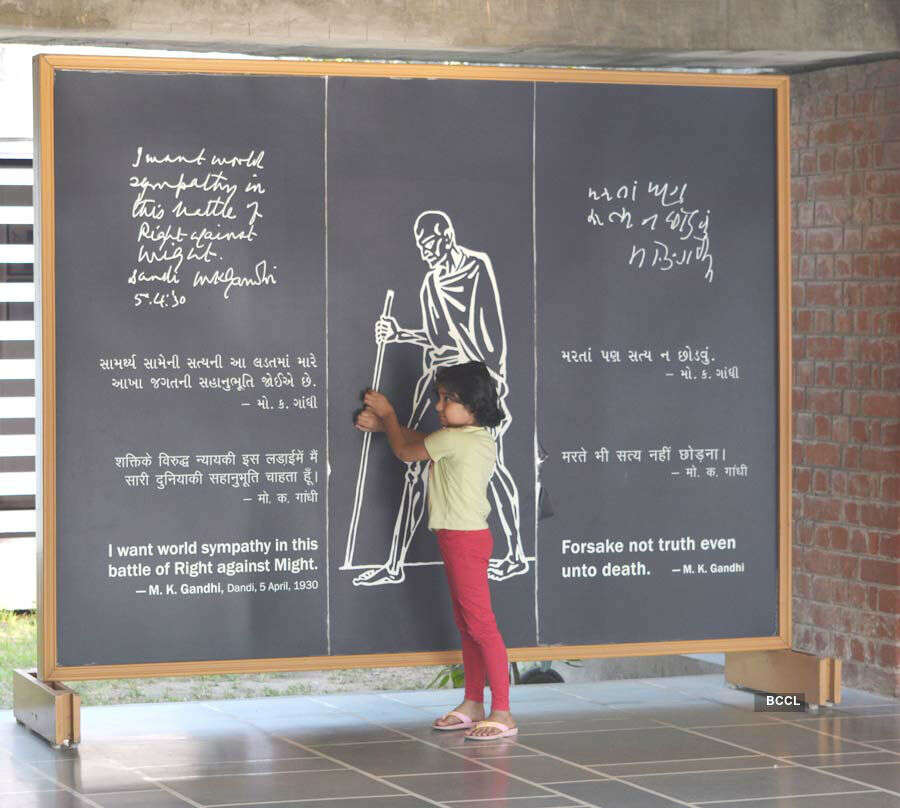 I want world
sympathy in
this battle of
Right against
Might.
Dandi MKGandhi
5.4.30
સામર્થ્ય સામેની સત્યની આ લડતમાં મારે
આખા જગતની સહાનુભૂતિ જોઈએ છે.
– મો. ક. ગાંધી
शक्तिके विरुद्ध न्यायकी इस लड़ाईमें मैं
सारी दुनियाकी सहानुभूति चाहता हूँ।
– मो. क. गांधी
I want world sympathy in this
battle of Right against Might.
– M. K. Gandhi, Dandi, 5 April, 1930
મરતાં પણ
સત્ય ન છોડવું
મરતાં પણ સત્ય ન છોડવું.
– મો. ક. ગાંધી
मरते भी सत्य नहीं छोड़ना।
– मो. क. गांधी
Forsake not truth even
unto death. – M. K. Gandhi
BCCL